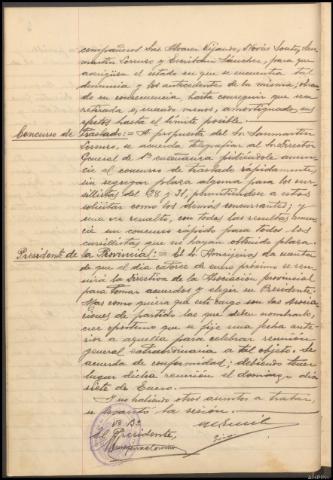 compañeros Sres Alvarez Eijando, Novás Souto, San
martín Lorenzo y Escribán Sánchez, para que
averigüen el estado en que se encuentra tal
denuncia y los antecedentes de la misma, obran
do en consecuencia, hasta conseguir que sea
retirada o, cuando menos, amortiguados sus
efectos hasta el límite posible.
Concurso de Traslado:= A propuesta del Sr. Sanmartín
Lorenzo, se acuerda telegrafiar al Sr. Director
General de 1ª enseñanza pidiéndole anun
cie el concurso de traslado rápidamente,
sin segregar plaza alguna para los cur
sillistas del 28 y 31, permitiendo a estos
solicitar como los demás concursantes; y
una vez resuelto, con todas las resultas anun
cie un concurso rápido para todos los
cursillistas que no hayan obtenido plaza.
Presidente de la Provincial:= El Sr. da cuenta
de que el día catorce de enero próximo se reu
nirá la Directiva de la Asociación provincial
para tomar acuerdos y elegir su Presidente.
Mas como quiera que este cargo son las Asocia
ciones de partido las que deben nombrarlo,
cree oportuno que se fije una fecha ante
rior a aquella para celebrar reunión
general extraordinaria a tal objeto. Se
acuerda de conformidad; debiendo tener
lugar dicha reunión el domingo día
siete de Enero.
Y no habiendo otros asuntos a tratar,
se levantó la sesión.
Vº Bº
El Presidente,